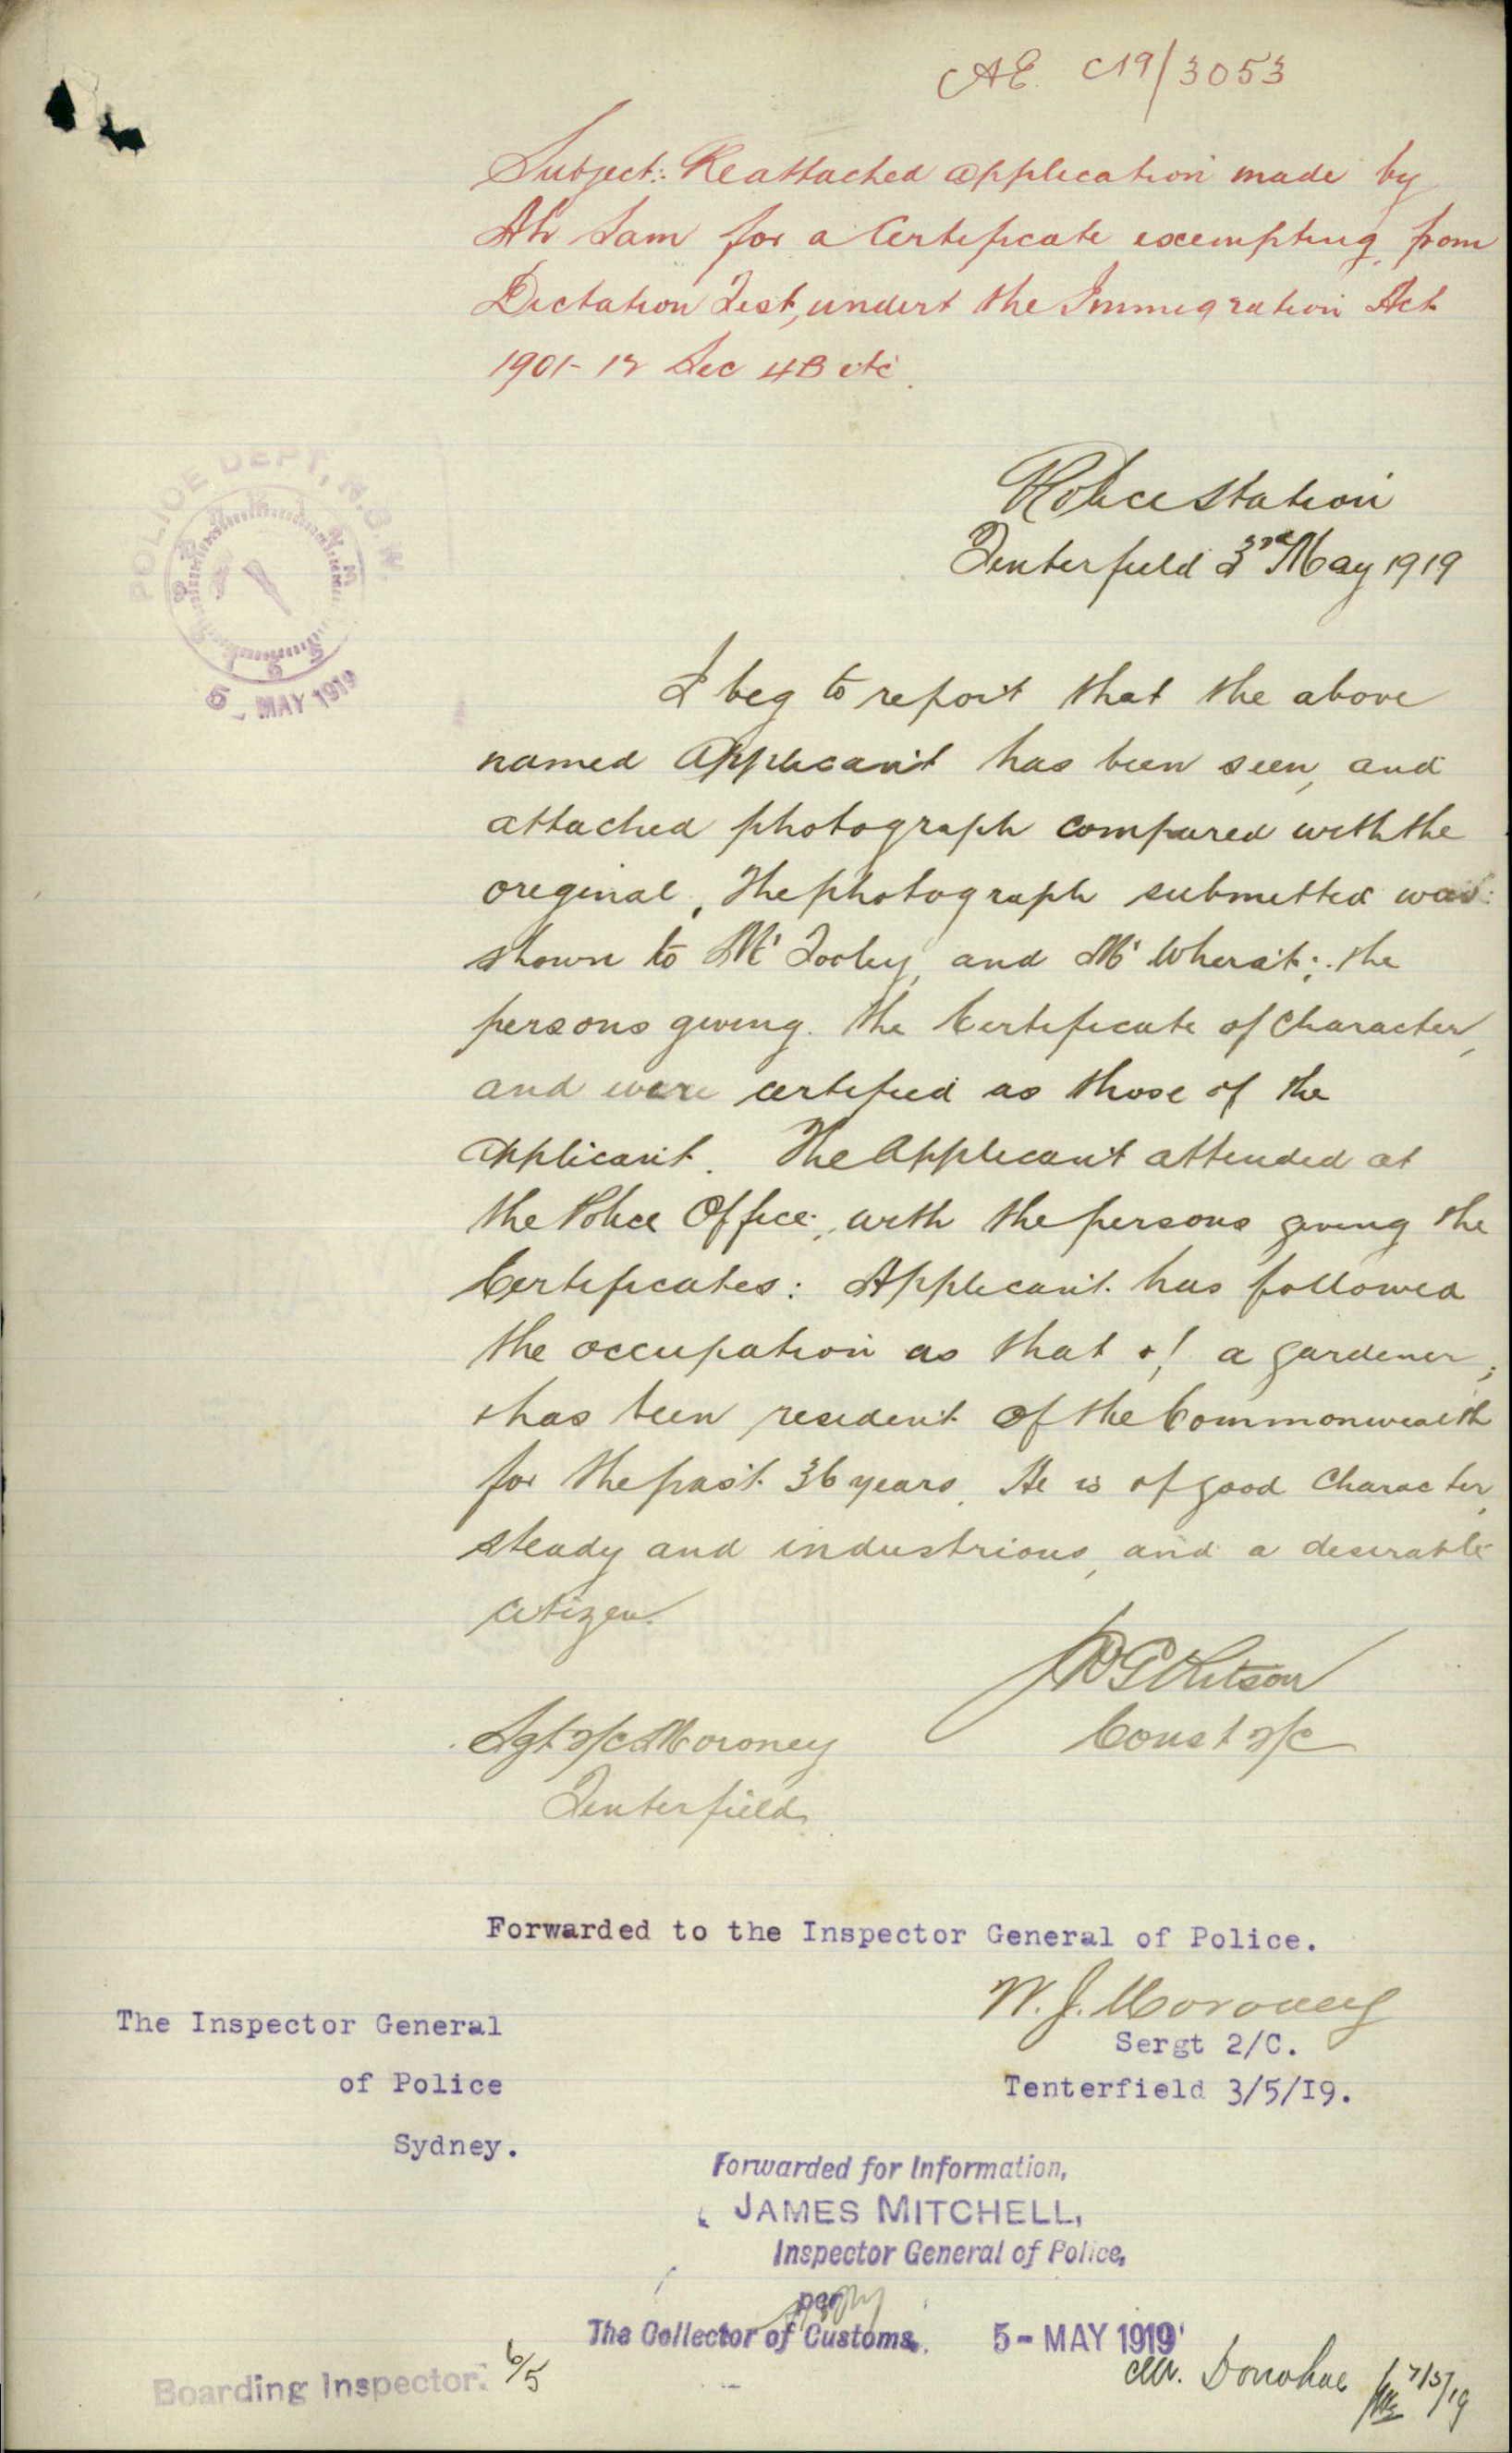 AE. C19/3053
Subject: Re attached application made by
Ah Sam for a Certificate exempting from
Dictation Test, undert the Immigration Act
1901-12 Sec 4B etc.
Police Station
Tenterfield 3rd May 1919
POLICE DEPT, N.S.W.
5 - MAY 1919
I beg to report that the above
named Applicant has been seen, and
attached photograph compared with the
original, The photograph submitted was
shown to Mr Tooley, and Mr Wherat; the
persons giving. the Certificate of Character,
and were certified as those of the
applicant. The Applicant attended at
the Police Office, with the persons giving the
Certificates: Applicant has followed
the occupation as that of a gardener;
& has been resident of the Commonwealth
for the past 36 years. He is of good Character,
steady and industrious, and a desirable
citizen.
Const 2/C
Sgt 2/C Moroney
Tenterfield
Forwarded to the Inspector General of Police.
W. J. Moroney
Sergt 2/C.
Tenterfield 3/5/I9.
The Inspector General
of Police
Sydney.
Forwarded for Information,
JAMES MITCHELL,
Inspector General of Police,
per
The Collector of Customs. 5 - MAY 1919
Boarding Inspector. 6/5
Mr. Donohue 7/5/19